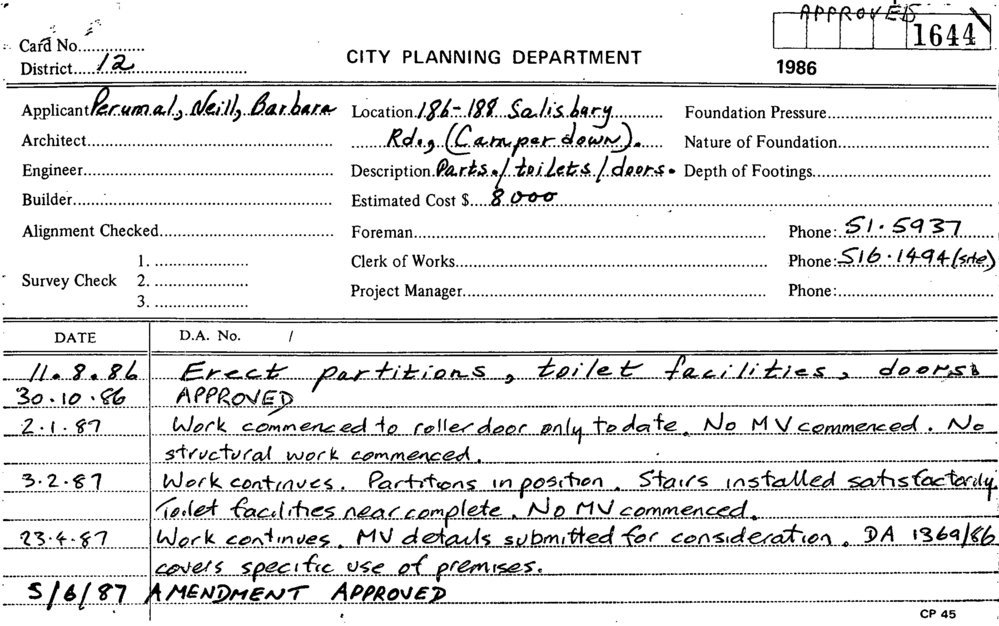 APPROVED
1644
Card No.
District 12
CITY PLANNING DEPARTMENT
1986
Applicant Perumal, Neill, Barbara
Location 186-188 Salisbury
Foundation Pressure
Architect
Rd., (Camperdown).
Nature of Foundation
Engineer
Description Parts./toilets/doors.
Depth of Footings
Builder
Estimated Cost $ 8000
Alignment Checked
Foreman
Phone: 51.5937
Survey Check
1.
2.
3.
Clerk of Works
Phone: 516.1494 (site)
Project Manager
Phone:
DATE
D.A. No. /
11.8.86 Erect partitions, toilet facilities, doors
30.10.86 APPROVED
2.1.87 Work commenced to roller door only to date. No MV commenced. No
structural work commenced.
3.2.87 Work continues. Partitions in position. Stairs installed satisfactorily
Toilet facilities near complete. No MV commenced.
23.4.87 Work continues. MV details submitted for consideration. DA 1369/86
covers specific use of premises.
5/6/87 AMENDMENT APPROVED
CP 45